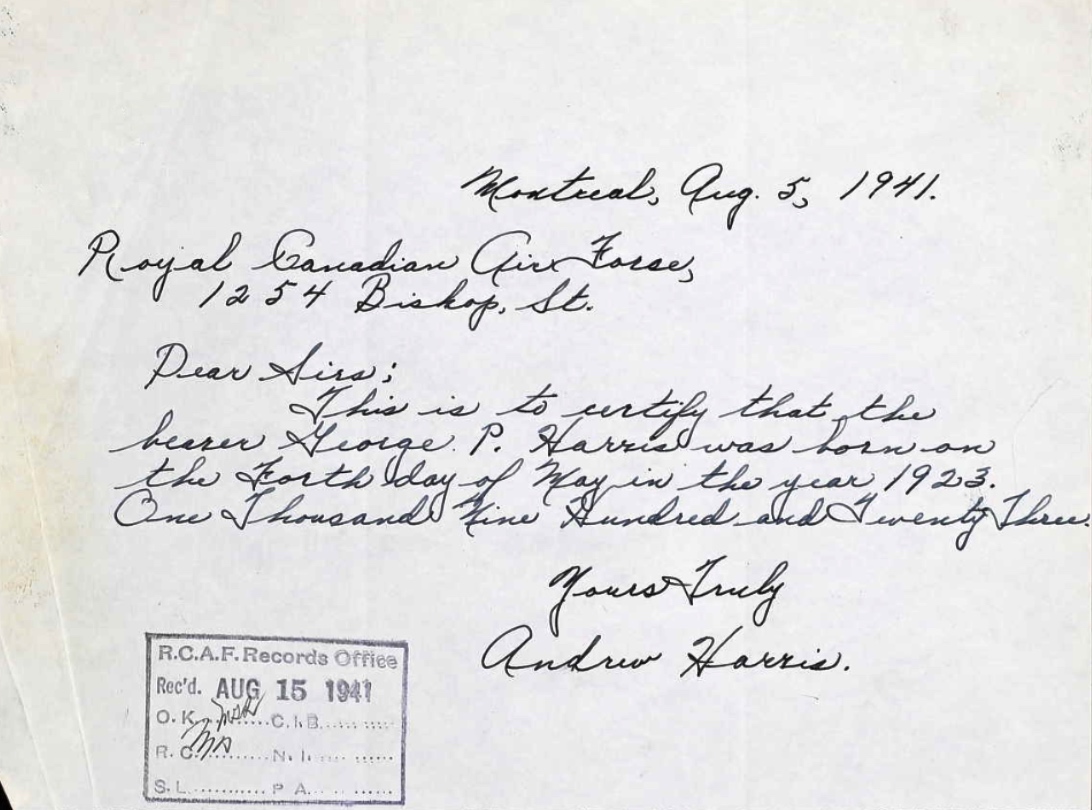 Montreal, Aug. 5, 1941.
Royal Canadian Air Forse,
1254 Bishop, St.
Dear Sirs;
This is to certify that the
bearer George P. Harris was born on
the Forth day of May in the year 1923.
One Thousand Nine Hundred and Twenty Three.
Yours Truly
Andrew Harris.
R.C.A.F. Records Office
Rec'd. AUG 15 1941
O.K. ........ C.I.B. ........
R.C. ........ N.I. ........
S.L. ........ P.A. ........